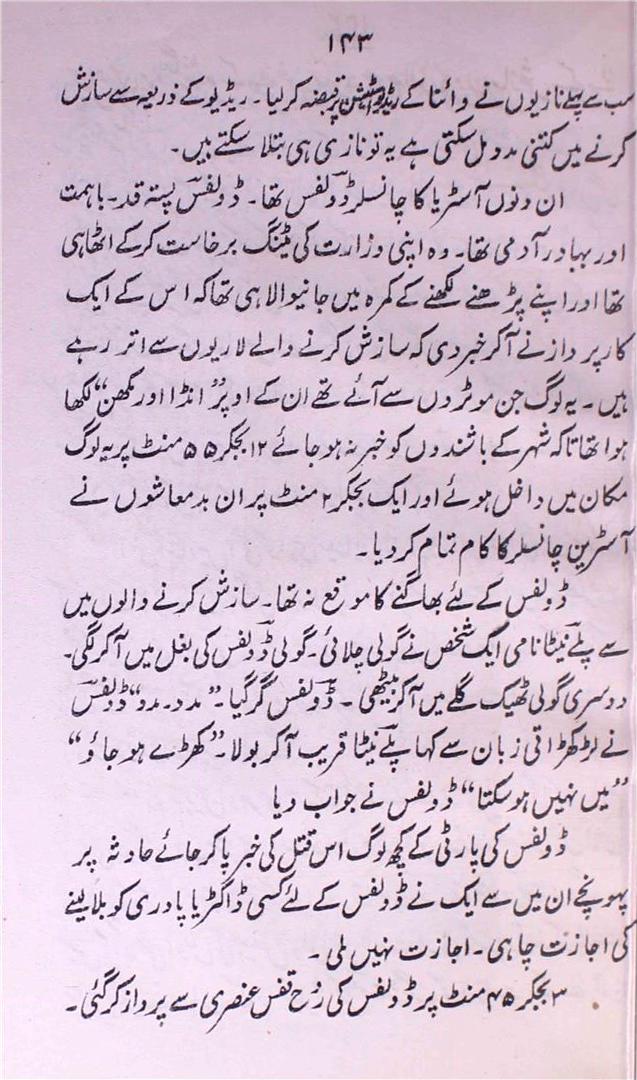 ۱۴۳
سب سے پہلے نازیوں نے وائنا کے ریڈیو اسٹیشن پر قبضہ کر لیا۔ ریڈیو کے ذریعہ سے سازش
کرنے میں کتنی مدد مل سکتی ہے یہ تو نازی ہی بتلا سکتے ہیں۔
ان دنوں آسٹریا کا چانسلر ڈولفس تھا۔ ڈولفس پستہ قد۔ باہمت
اور بہادر آدمی تھا۔ وہ اپنی وزارت کی مٹینگ برخاست کر کے اٹھا ہی
تھا اور اپنے پڑھنے لکھنے کے کمرہ میں جانیوالا ہی تھا کہ اس کے ایک
کارپرداز نے آکر خبر دی کہ سازش کرنے والے لاریوں سے اتر رہے
ہیں۔ یہ لوگ جن موٹروں سے آئے تھے ان کے اوپر "انڈا اور مکھن" لکھا
ہوا تھا تاکہ شہر کے باشندوں کو خبر نہ ہو جائے ۱۲ بجکر ۵۵ منٹ پر یہ لوگ
مکان میں داخل ہوئے اور ایک بجکر ۲ منٹ پر ان بدمعاشوں نے
آسٹرین چانسلر کا کام تمام کر دیا۔
ڈولفس کے لئے بھاگنے کا موقع نہ تھا۔ سازش کرنے والوں میں
سے پلے نیٹا نامی ایک شخص نے گولی چلائی۔ گولی ڈولفس کی بغل میں آکر لگی۔
دوسری گولی ٹھیک گلے میں آکر بیٹھی۔ ڈولفس گر گیا۔ "مدد۔ مدد" ڈولفس
نے لڑکھڑاتی زبان سے کہا پلے نیٹا قریب آکر بولا۔ "کھڑے ہو جاؤ"
"میں نہیں ہو سکتا" ڈولفس نے جواب دیا
ڈولفس کی پارٹی کے کچھ لوگ اس قتل کی خبر پاکر جائے حادثہ پر
پہونچے ان میں سے ایک نے ڈولفس کے لئے کسی ڈاکٹر یا پادری کو بلا لینے
کی اجازت چاہی۔ اجازت نہیں ملی۔
۳ بجکر ۴۵ منٹ پر ڈولفس کی روح قفس عنصری سے پرواز کر گئی۔